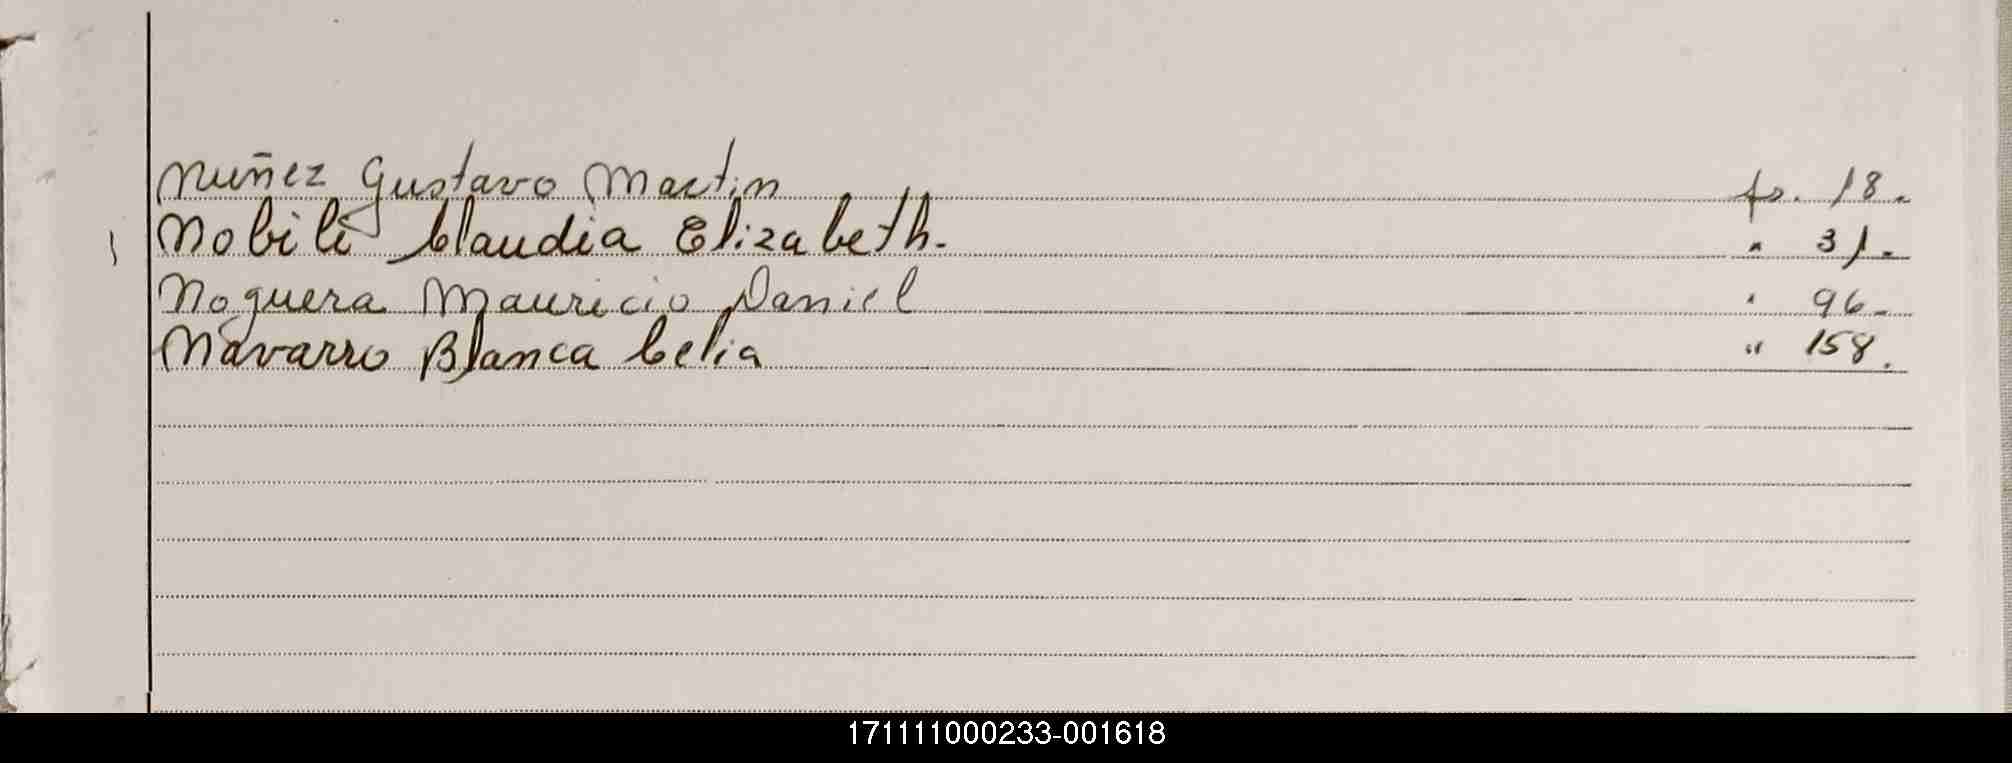 Nuñez Gustavo Martin fs. 18.
Nobili Claudia Elizabeth. " 31.
Noguera Mauricio Daniel " 96.
Navarro Blanca Celia " 158.
171111000233-001618